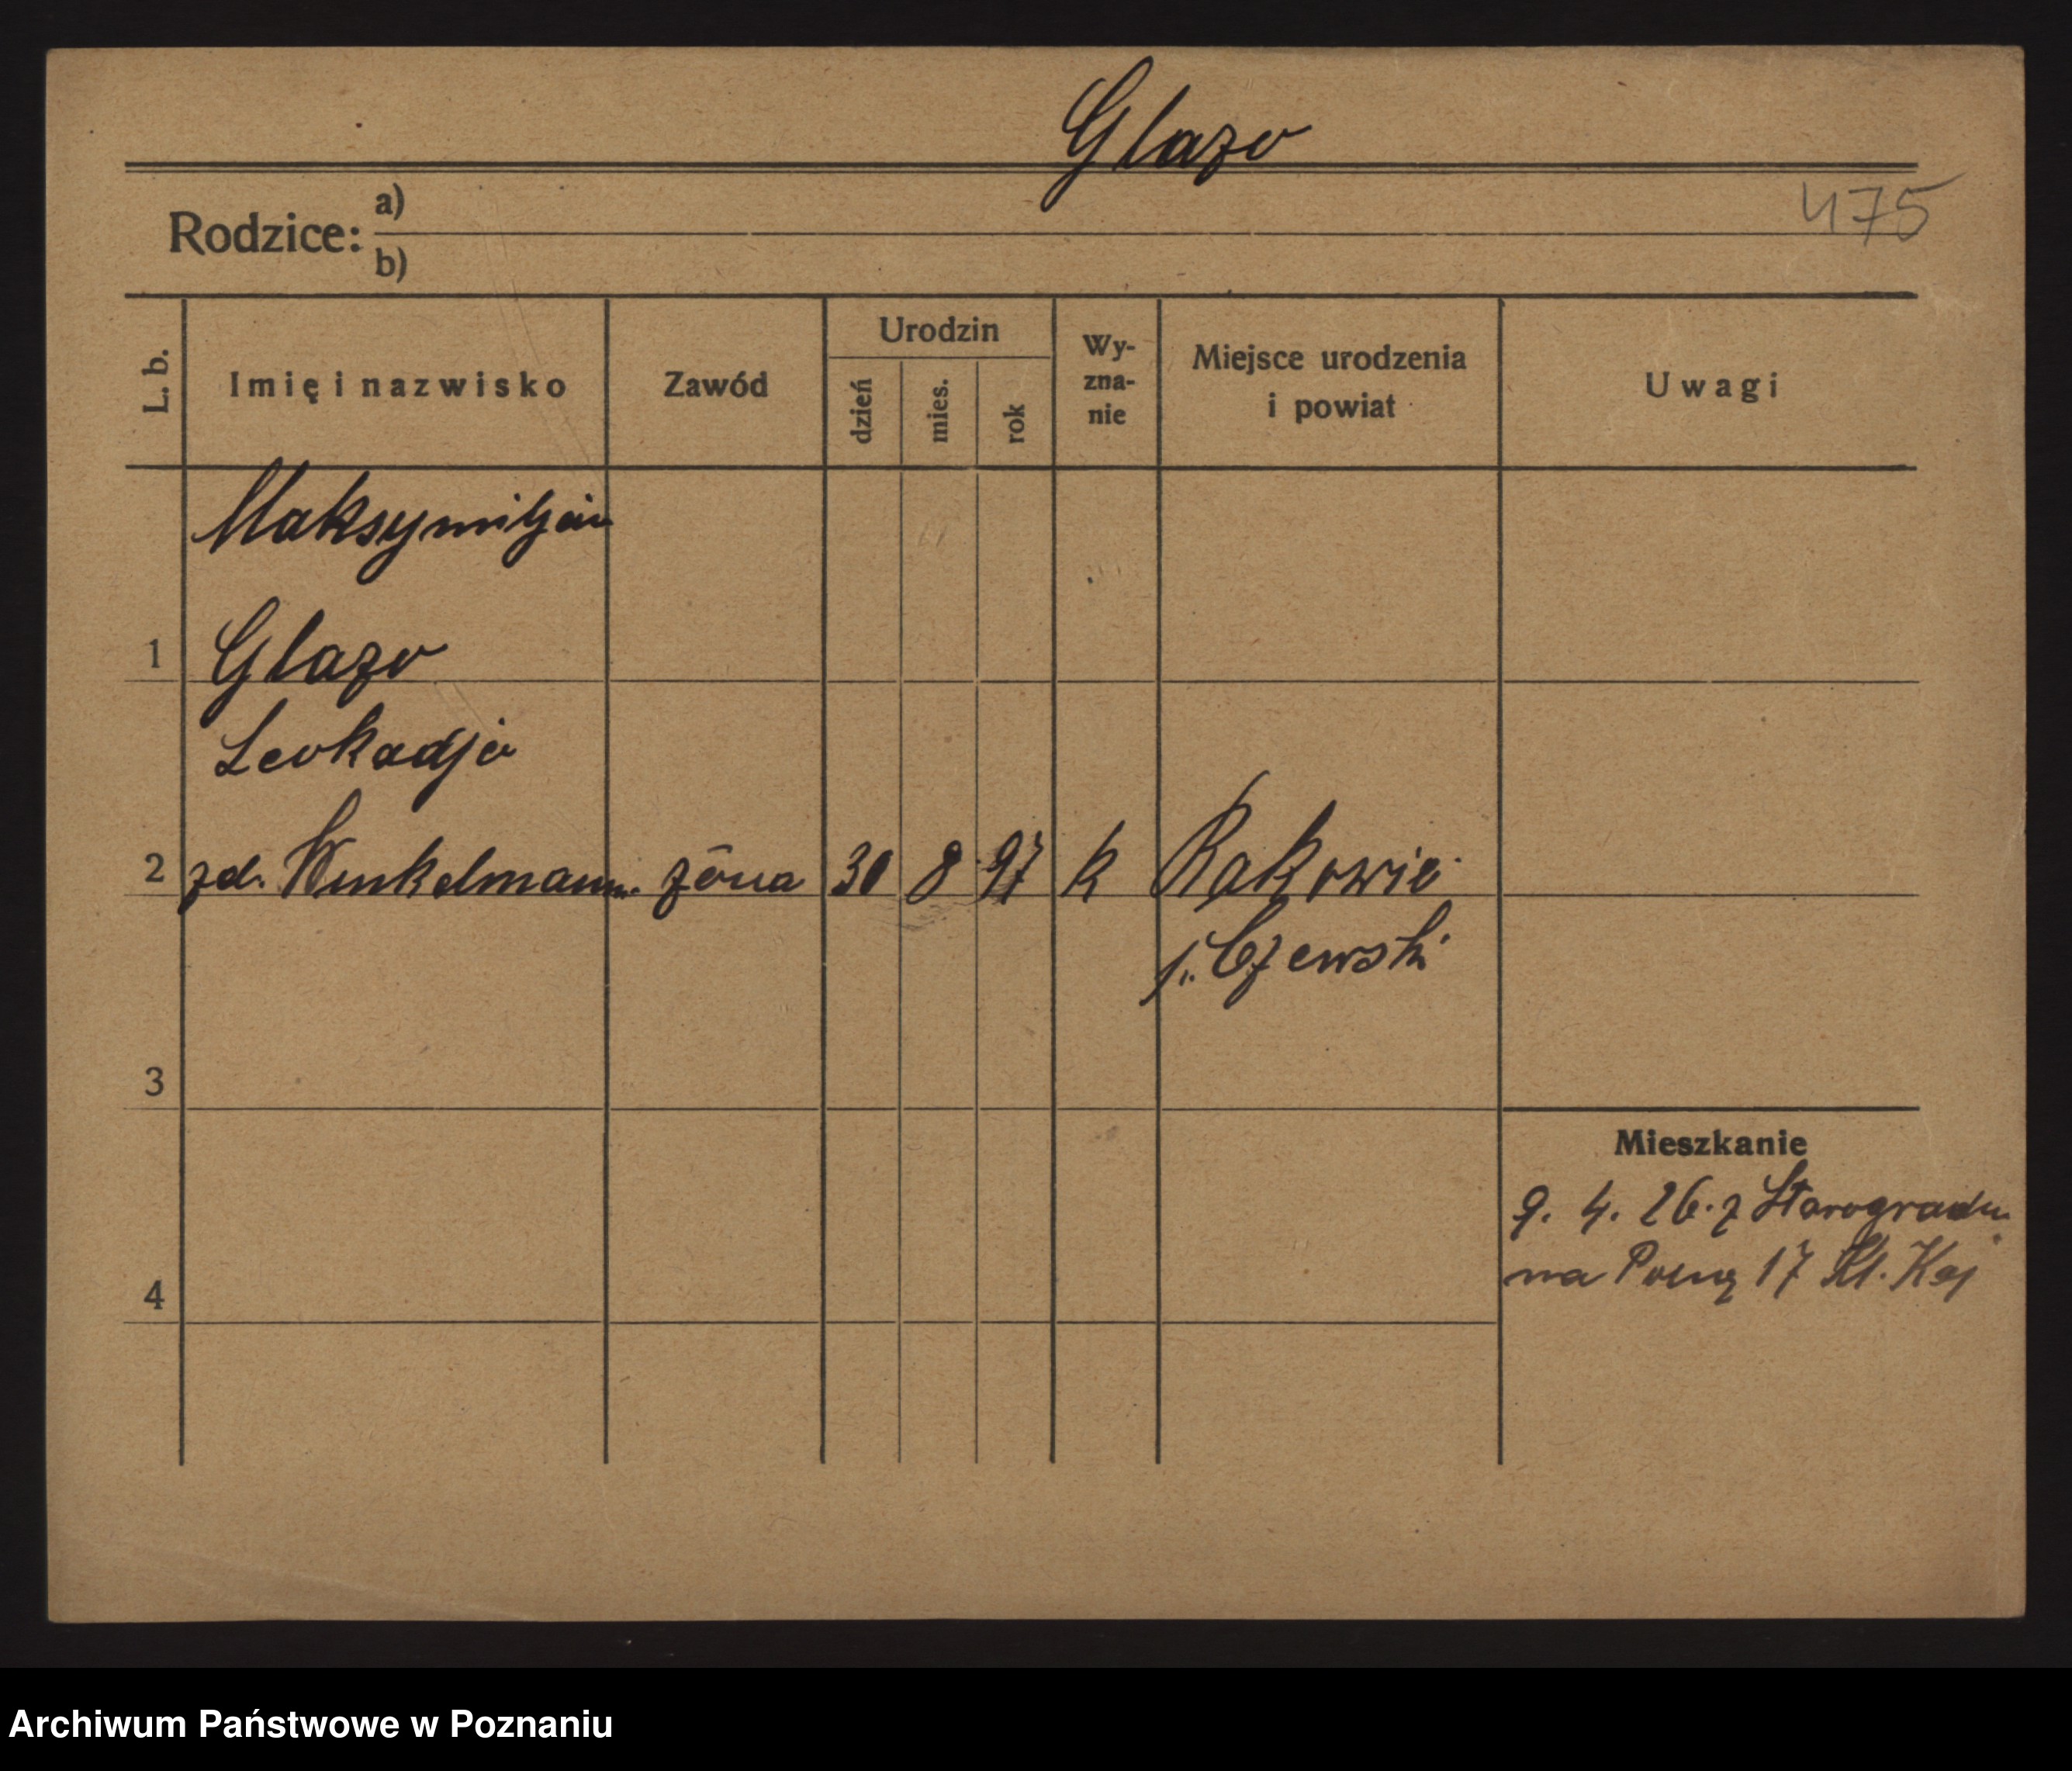 Glazo
475
Rodzice: a)
b)
L. b.
Imię i nazwisko
Zawód
Urodzin
dzień
mies.
rok
Wy-
zna-
nie
Miejsce urodzenia
i powiat
Uwagi
Maksymiljan
1 Glazo
Leokadja
2 zd. Winkelmann. żona 30 8 97 k Rakowie
p. Czewski
3
Mieszkanie
9. 4. 26. z Starogradu
na 17
4
Archiwum Państwowe w Poznaniu